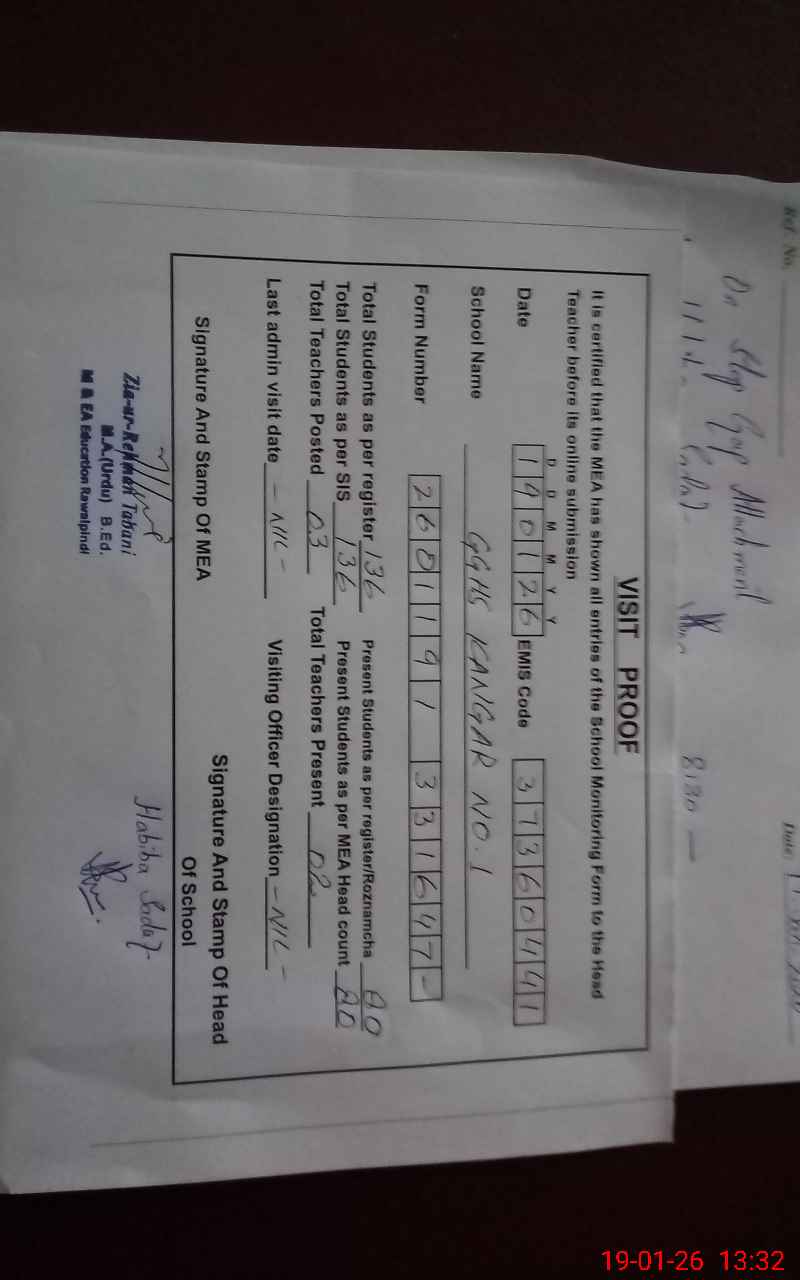 Ref. No.
Date:
On Stop Gap Attachment
8:30 —
VISIT PROOF
It is certified that the MEA has shown all entries of the School Monitoring Form to the Head
Teacher before its online submission
D D M M Y Y
Date 190126 EMIS Code 37360441
School Name GGHS KANGAR NO. 1
Form Number 26011911 331647-
Total Students as per register 136 Present Students as per register/Roznamcha 80
Total Students as per SIS 136 Present Students as per MEA Head count 80
Total Teachers Posted 03 Total Teachers Present 02
Last admin visit date - NIL - Visiting Officer Designation - NIL -
Signature And Stamp Of MEA
Signature And Stamp Of Head
Of School
Zia-ur-Rehman Tabani
M.A.(Urdu) B.Ed.
M & EA Education Rawalpindi
Habiba Sadaf
19-01-26 13:32